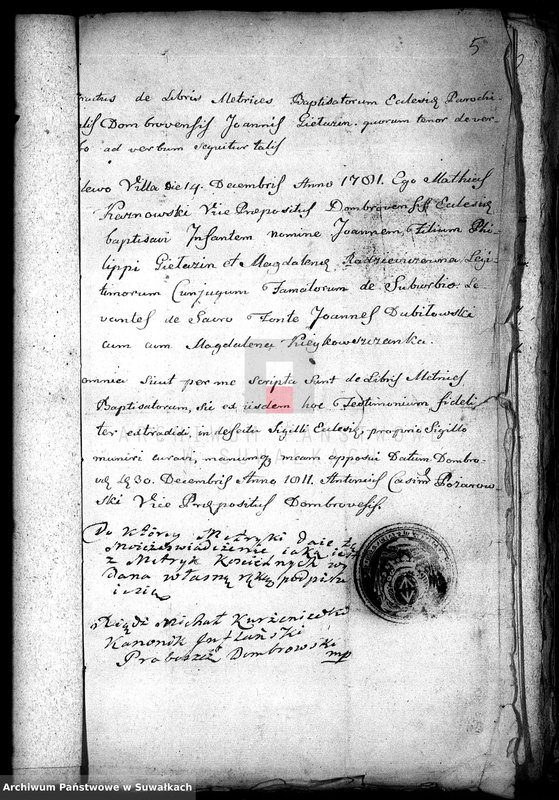 5
ractus de Libris Metrices Baptisatorum Eclesię Parochi-
alis Dombrovensis Joannis Gietazin. quorum tenor de ver-
bo ad verbum sequitur talis
lewo Villa Die 14. Decembris Anno 1781. Ego Mathius
Karnowski Vice Præpositus Dombrovensis Eclesię
baptisavi Infantem nomine Joannem, Filium Phi-
lippi Gietazin et Magdalenę Radziewiczewna Legi-
timorum Conjugum Famatorum de Suburbio. Le
vantes de Sacro Fonte Joannes Dubitowski
cum Magdalena Kieykowszczanka.
omnia sicut per me scripta sunt de Libris Metrices
Baptisatorum, sic ed iisdem hoc Testimonium fideli
ter extradidi, in defectu Sigilli Eclesię, proprio Sigillo
muniri curavi, manumq meam apposui Datum Dombro-
vę 30. Decembris Anno 1811. Antonius Casim Pozarow-
ski Vice Præpositus Dombrovesis.
Do którey Metryki daię
zaświadczenie iako iest
z Metryk Kościelnych wy
dana własną ręką podpisu
ię się
Xiądz Michał Kurzeniecki
Kanonik Inflanski
Proboszcz Dombrowski
mp
ARCHIWUM PAŃSTWOWE
Archiwum Państwowe w Suwałkach